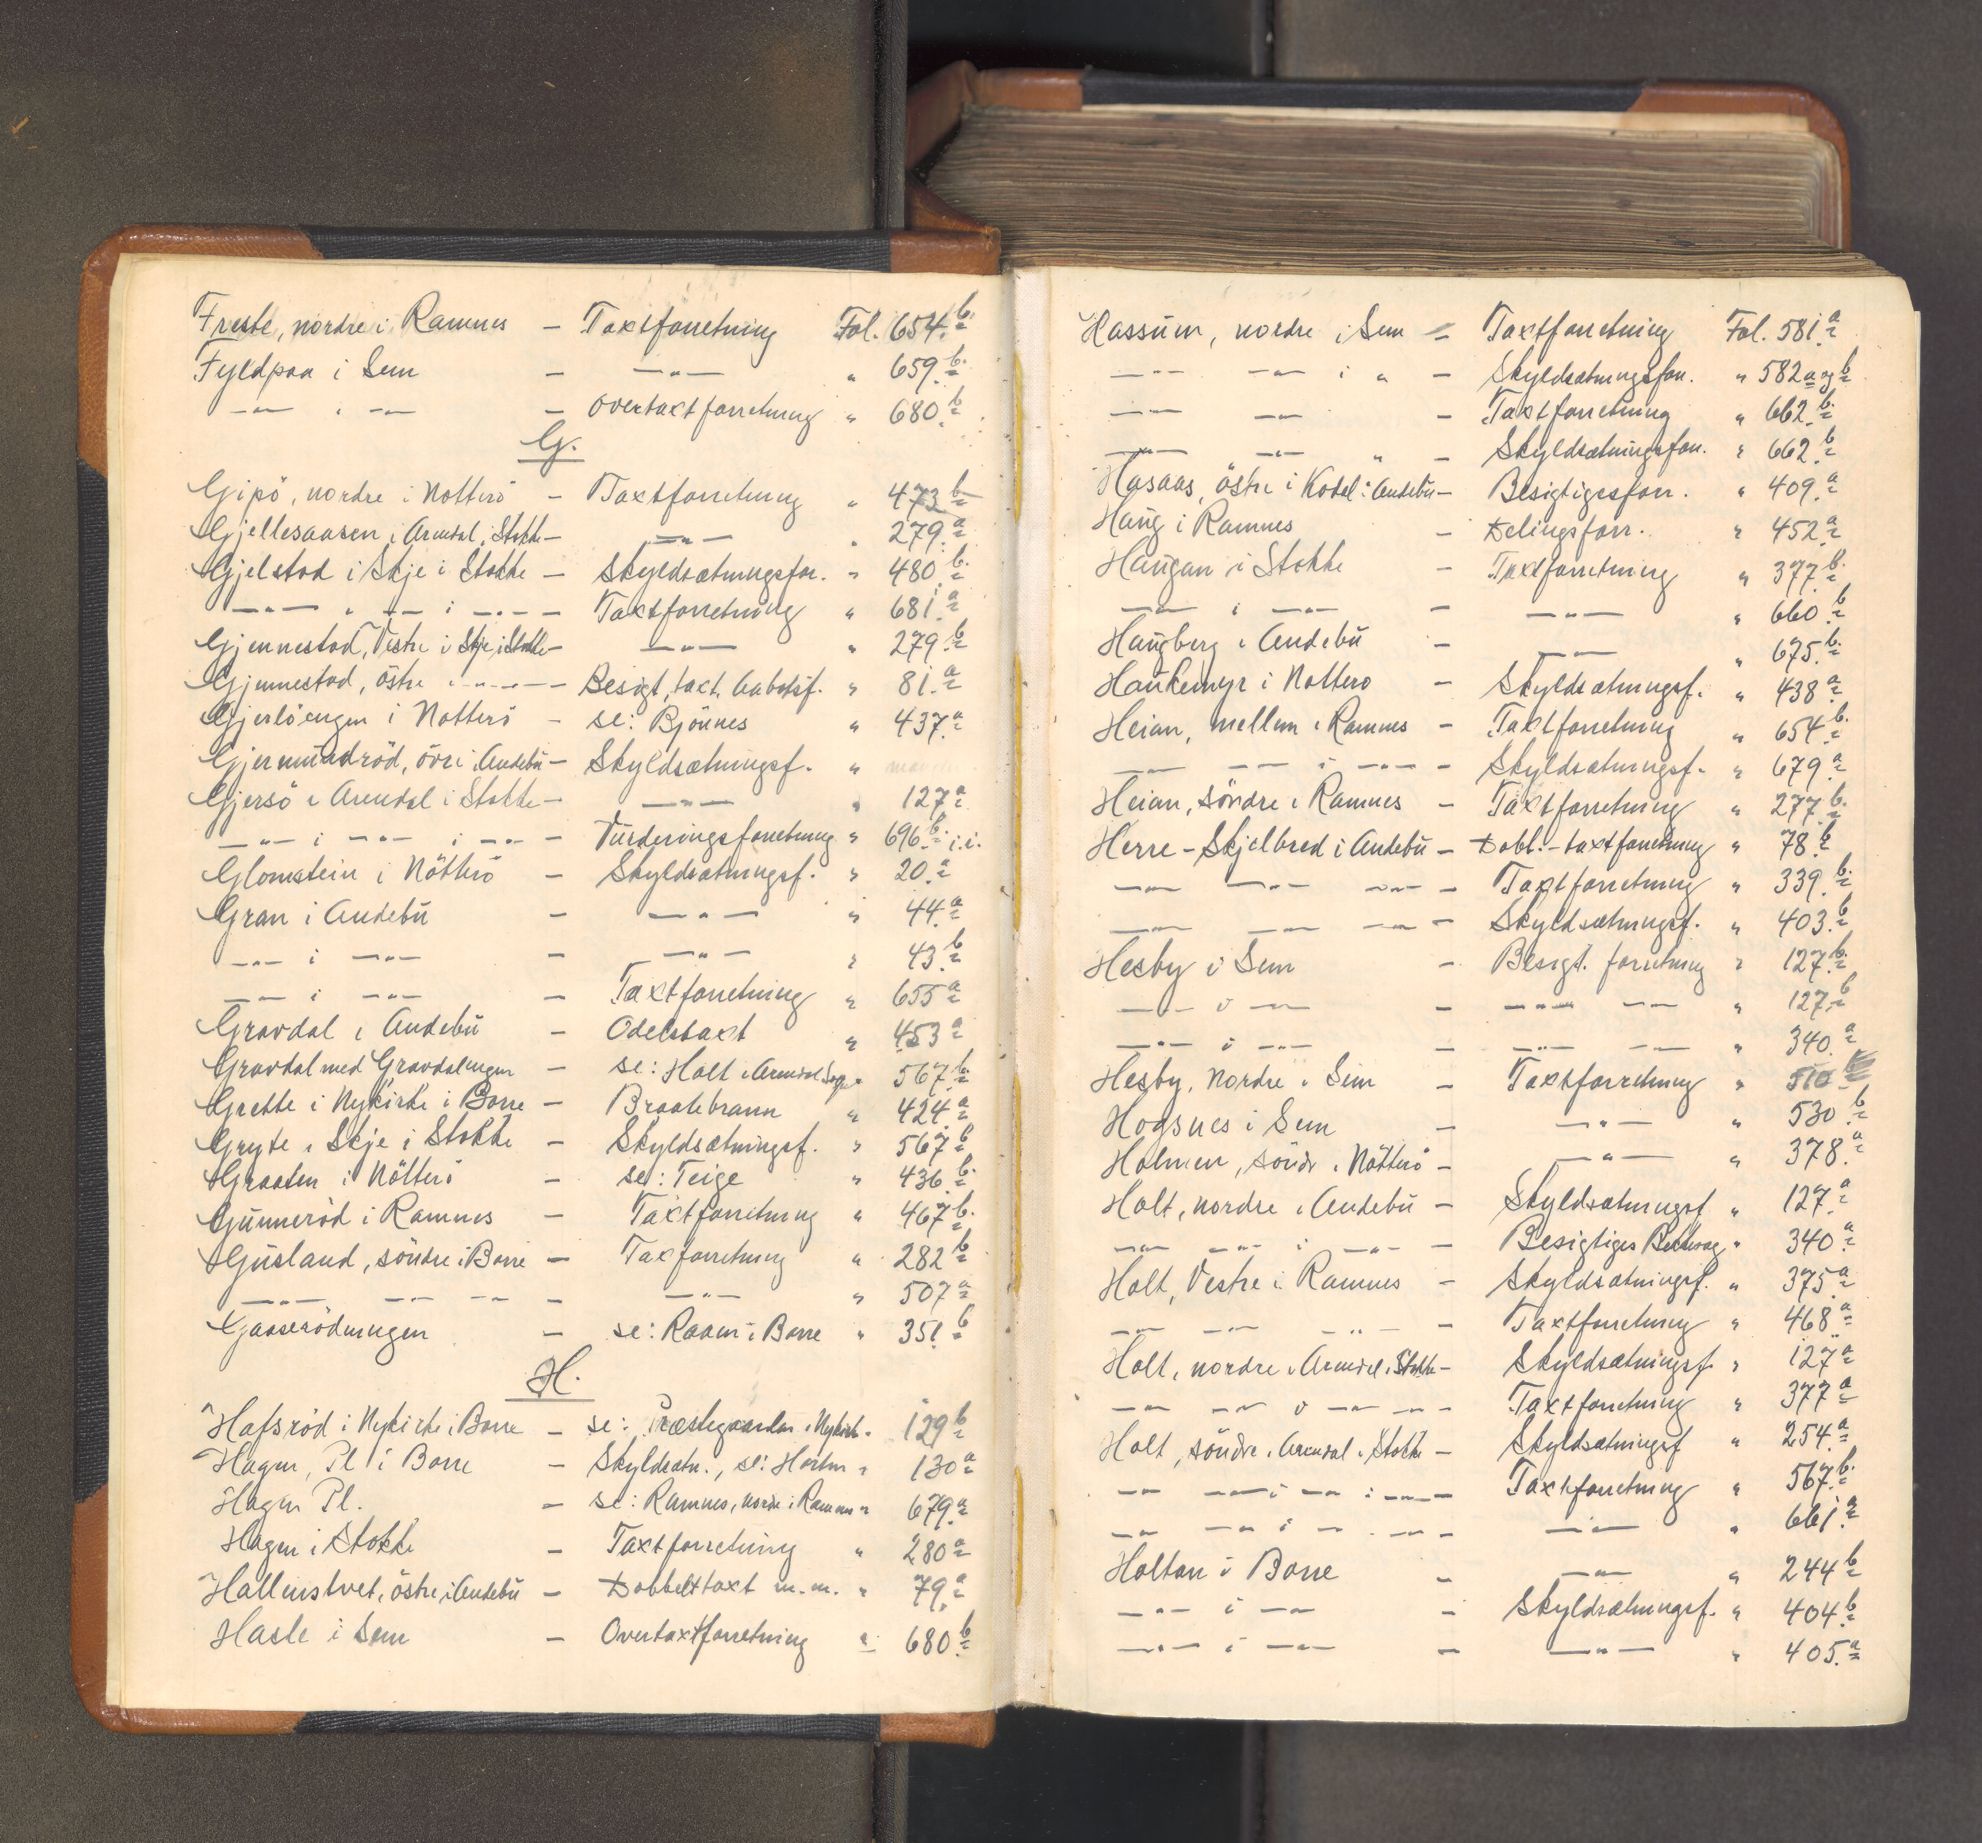 Freste, nordre i Ramnes — Taxtforretning Fol. 654.b
Fyldpaa i Sem — —"— " 659.b
—"— " —"— — Overtaxtforretning " 680.b
G.
Gipö, nordre i Notterö — Taxtforretning " 473 b
Gjellesaasen i Arendal i Stokke — —"— " 279.a
Gjelstad i Skje i Stokke — Skyldsætningsfor. " 480.b
—"— " —"— i —"— — Taxtforretning " 681.a
Gjennestad, Vestre i Skje i Stokke — —"— " 279.b
Gjennestad, östre " —"— — Besigt., taxt, Aabotsf. " 81.a
Gjerlöengen i Notterö — se: Bjönnes " 437.a
Gjermundröd, övre i Andebu — Skyldsætningsf. "
Gjersö i Arendal i Stokke — —"— " 127.a
—"— i —"— i —"— — Vurderingsforretning " 696.b i.i.
Glomstein i Nötterö — Skyldsætningsf. " 20.a
Gran i Andebu — —"— " 44.a
—"— i —"— — —"— " 43.b
—"— i —"— — Taxtforretning " 655 a
Gravdal i Andebu — Odelstaxt " 453 a
Gravdal med Gravdalengen — se: Holt i Arendal Sogn " 567.b
Grette i Nykirke i Borre — Braatebrann " 424.a
Gryte i Skje i Stokke — Skyldsætningsf. " 567 b
Graaten i Nötterö — se: Teige " 436.b
Gunneröd i Ramnes — Taxtforretning " 467 b.
Gusland, söndre i Borre — Taxforretning " 282 b
—"— —"— —"— — —"— " 507 a
Gaaserödningen — se: Raaen i Borre " 351.b
H.
Hafsröd i Nykirke i Borre — se: Præstegaarden i Nykirke " 129 b
Hagen, Pl i Borre — Skyldsætn., se: Horten " 130 a
Hagen Pl. — se: Ramnes, nordre i Ramnes " 679.a
Hagen i Stokke — Taxtforretning " 280 a
Hallenstvet, östre i Andebu — Dobbelttaxt m.m. " 79.a
Hasle i Sem — Overtaxtforretning " 680.b
Hassum, nordre i Sem — Taxtforretning Fol. 581.a
—"— —"— i " — Skyldsætningsforr. " 582 a og b
—"— —"— — Taxtforretning " 662.b
—"— —"— " — Skyldsætningsforr. " 662.b
Hasaas, östre i Kodal i Andebu — Besigtigesforr. " 409.a
Haug i Ramnes — Delingsforr. " 452.a
Haugan i Stokke — Taxtforretning " 377.b
—"— i —"— — —"— " 660.b
Haugberg i Andebu — —"— " 675.b
Haukemyr i Nottero — Skyldsætningsf. " 438.a
Heian, mellem i Ramnes — Taxtforretning " 654.b
—"— —"— i —"— — Skyldsætningsf. " 679.a
Heian, söndre i Ramnes — Taxtforretning " 277.b
Herre-Skjelbred i Andebu — Dobl.-taxtforretning " 78.b
—"— —"— —"— — Taxtforretning " 339.b
—"— —"— —"— — Skyldsætningsf. " 403.b
Hesby i Sem — Besigt. forretning " 127.b
—"— i —"— — —"— —"— " 127.b
—"— i —"— — —"— —"— " 340.a
Hesby, Nordre i Sem — Taxtforretning " 510
Hogsnes i Sem — —"— " 530.b
Holmen, söndr i Nötterö — —"— " 378.a
Holt, nordre i Andebu — Skyldsætningsf. " 127.a
—"— —"— i —"— — Besigtiges " 340.a
Holt, Vestre i Ramnes — Skyldsætningsf. " 375.a
—"— —"— —"— — Taxtforretning " 468 a
Holt, nordre i Arendal i Stokke — Skyldsætningsf. " 127 a
—"— —"— i —"— —"— — Taxtforretning " 377 a
Holt, söndre i Arendal i Stokke — Skyldsætningsf " 254.a
—"— —"— i —"— i —"— — Taxtforretning " 567.b
—"— —"— i —"— —"— — —"— " 661.a
Holtan i Borre — —"— " 244 b
—"— i —"— — Skyldsætningsf. " 404.b
—"— i —"— — —"— " 405.a